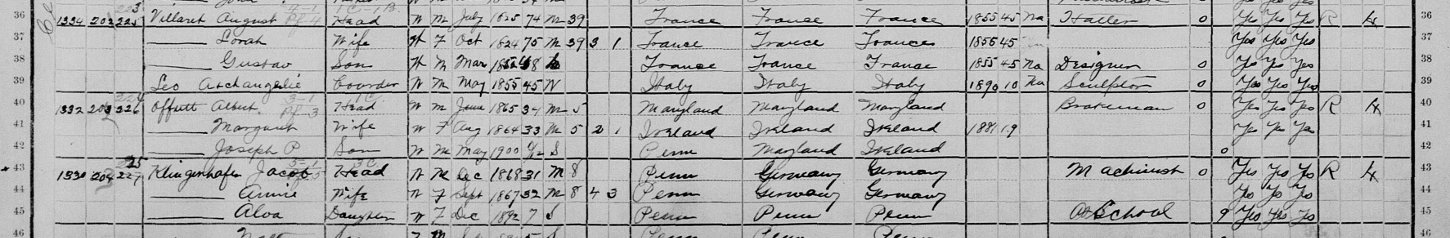 36 1334 202 Villaret August Head W M July 1825 74 M 39 France France France 1855 45 Na Hatter 0 Yes Yes Yes R H 36
37 —— Sorah Wife W F Oct 1824 75 M 39 3 1 France France France 1855 45 Yes Yes Yes 37
38 —— Gustav Son W M Mar France France France 1855 45 Na Designer 0 Yes Yes Yes 38
39 Leo Archangelie Boarder W M May 1855 45 W Italy Italy Italy 1890 10 Na Sculptor 0 Yes Yes Yes 39
40 1332 203 Offutt Albert Head W M June 1865 34 M 5 Maryland Maryland Maryland Brakeman 0 Yes Yes Yes R H 40
41 —— Margaret Wife W F Aug 1864 33 M 5 2 1 Ireland Ireland Ireland 1881 19 Yes Yes Yes 41
42 —— Joseph P Son W M May 1900 /12 S Penn Maryland Ireland 0 42
43 1330 204 Klingenhafer Jacob Head W M Dec 1868 31 M 8 Penn Germany Germany Machinist 0 Yes Yes Yes R H 43
44 —— Annie Wife W F Sept 1867 32 M 8 4 3 Penn Germany Germany Yes Yes Yes 44
45 —— Alva Daughter W F Dec 1892 7 S Penn Penn Penn At School 9 Yes Yes Yes 45
46 46